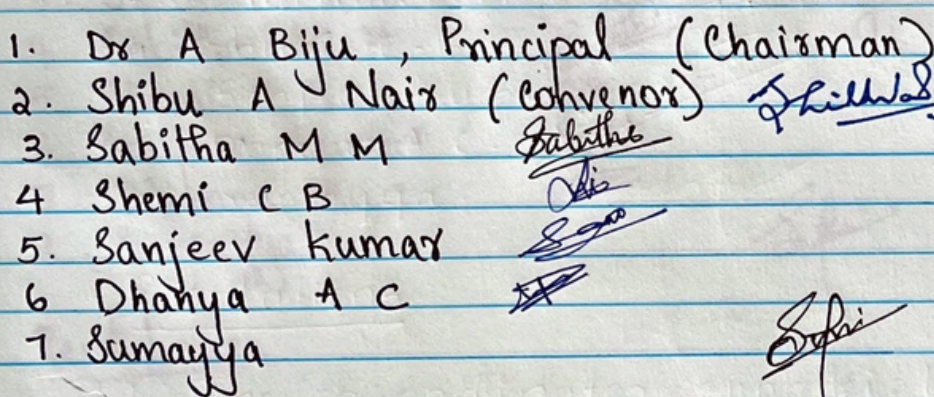 1. Dr A Biju, Principal (Chairman)
2. Shibu A Nair (Convenor)
3. Sabitha M M Sabitha
4 Shemi C B
5. Sanjeev Kumar
6 Dhanya A C
7. Sumayya